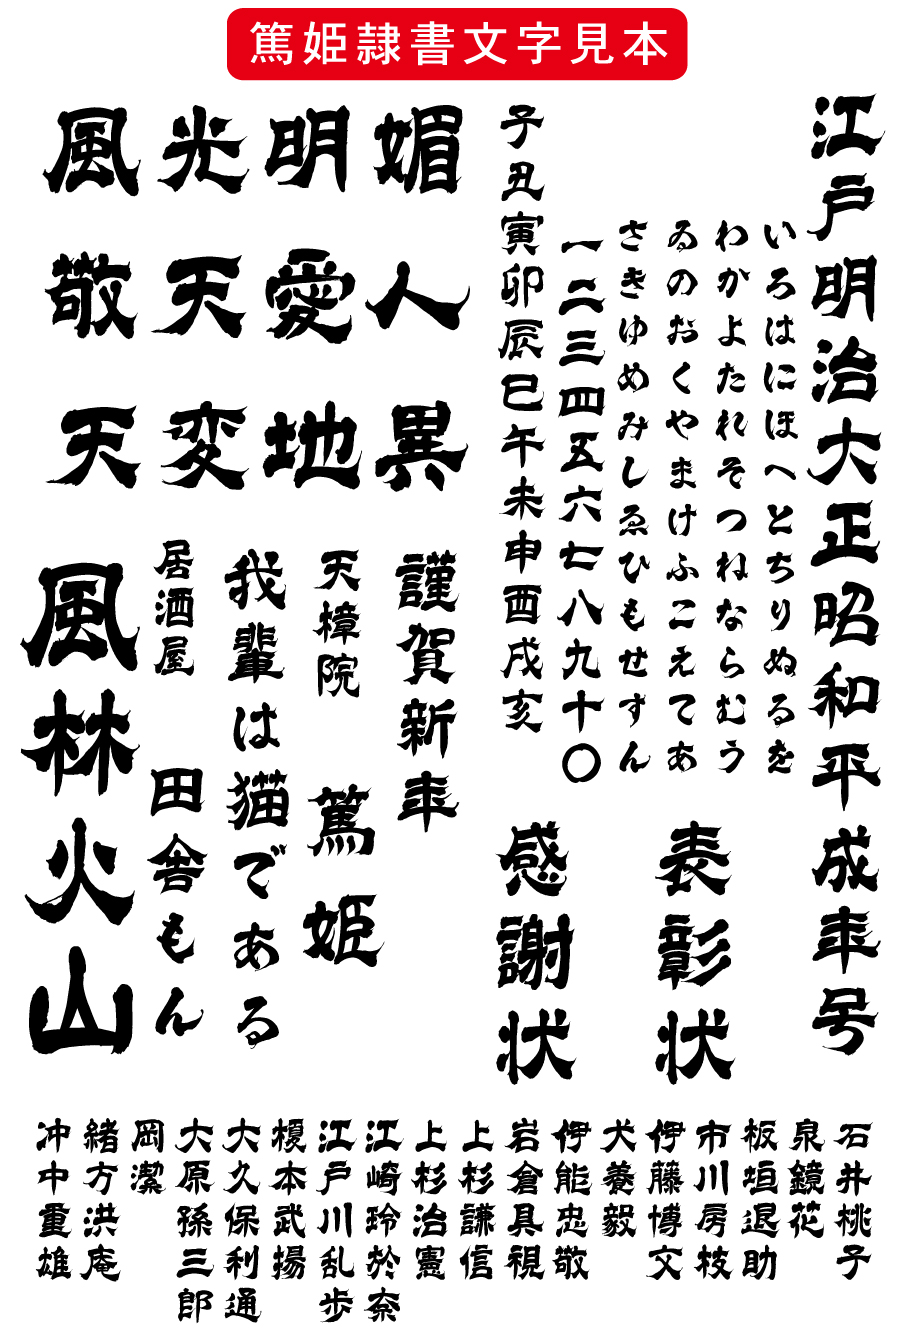 篤姫隷書文字見本
江戸明治大正昭和平成年号
いろはにほへとちりぬるを
わかよたれそつねならむう
ゐのおくやまけふこえてあ
さきゆめみしゑひもせすん
一二三四五六七八九十〇
子丑寅卯辰巳午未申酉戌亥
表彰状
感謝状
風光明媚
敬天愛人
天変地異
謹賀新年
天樟院 篤姫
我輩は猫である
居酒屋 田舎もん
風林火山
石井桃子
泉鏡花
板垣退助
市川房枝
伊藤博文
犬養毅
伊能忠敬
岩倉具視
上杉謙信
上杉治憲
江崎玲於奈
江戸川乱歩
榎本武揚
大久保利通
大原孫三郎
岡潔
緒方洪庵
冲中重雄